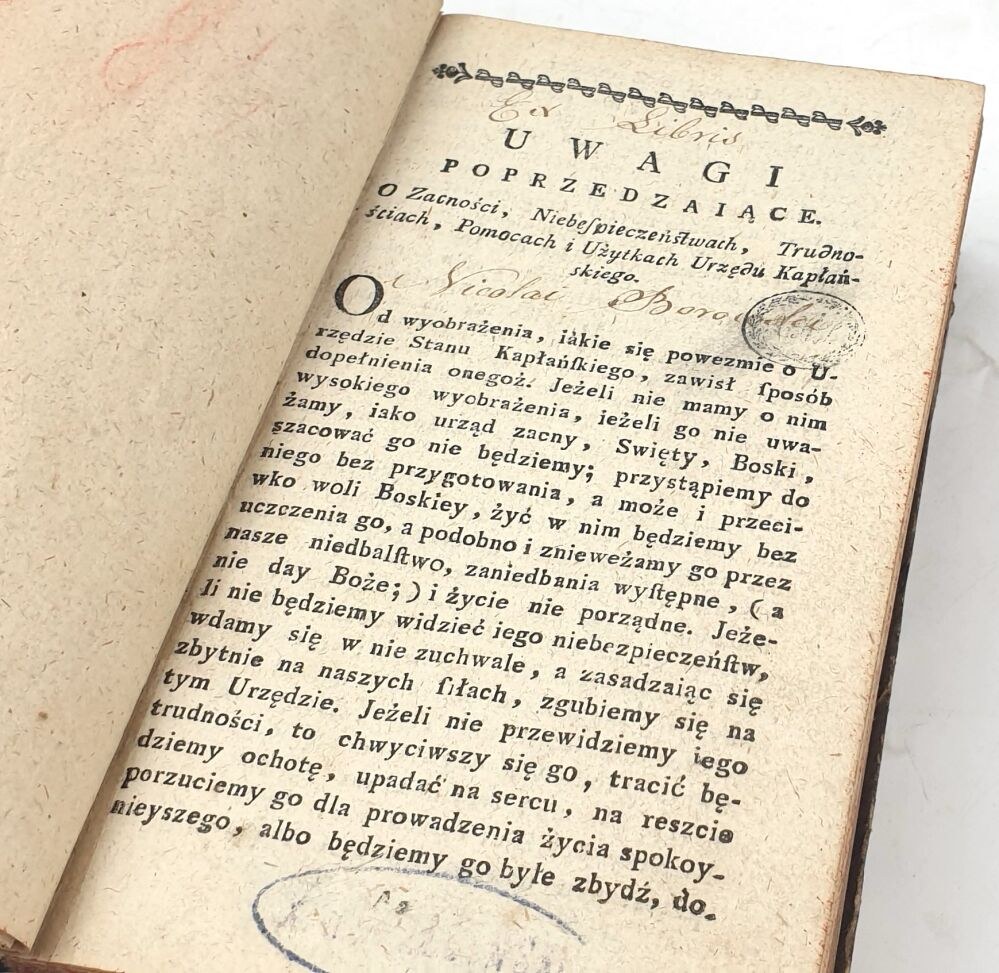 Ex Libris
UWAGI
POPRZEDZAIĄCE.
O Zacności, Niebeſpieczeńſtwach, Trudno-
ściach, Pomocach i Użytkach Urzędu Kapłań-
skiego.
Nicolai
Od wyobrażenia, iakie się powezmie o U-
rzędzie Stanu Kapłańſkiego, zawisł ſposób
dopełnienia onegoż. Jeżeli nie mamy o nim
wysokiego wyobrażenia, ieżeli go nie uwa-
żamy, iako urząd zacny, Swięty, Boski,
szacować go nie będziemy; przystąpiemy do
niego bez przygotowania, a może i przeci-
wko woli Boskiey, żyć w nim będziemy bez
uczczenia go, a podobno i znieweżamy go przez
nasze niedbalſtwo, zaniedbania wyſtępne, (a
nie day Boże;) i życie nie porządne. Jeże-
li nie będziemy widzieć iego niebezpieczeńſtw,
wdamy się w nie zuchwale, a zasadzaiąc się
zbytnie na naszych ſiłach, zgubiemy się na
tym Urzędzie. Jeżeli nie przewidziemy iego
trudności, to chwyciwszy się go, tracić bę-
dziemy ochotę, upadać na sercu, na reszcie
porzuciemy go dla prowadzenia życia spokoy-
nieyszego, albo będziemy go byłe zbydź, do.